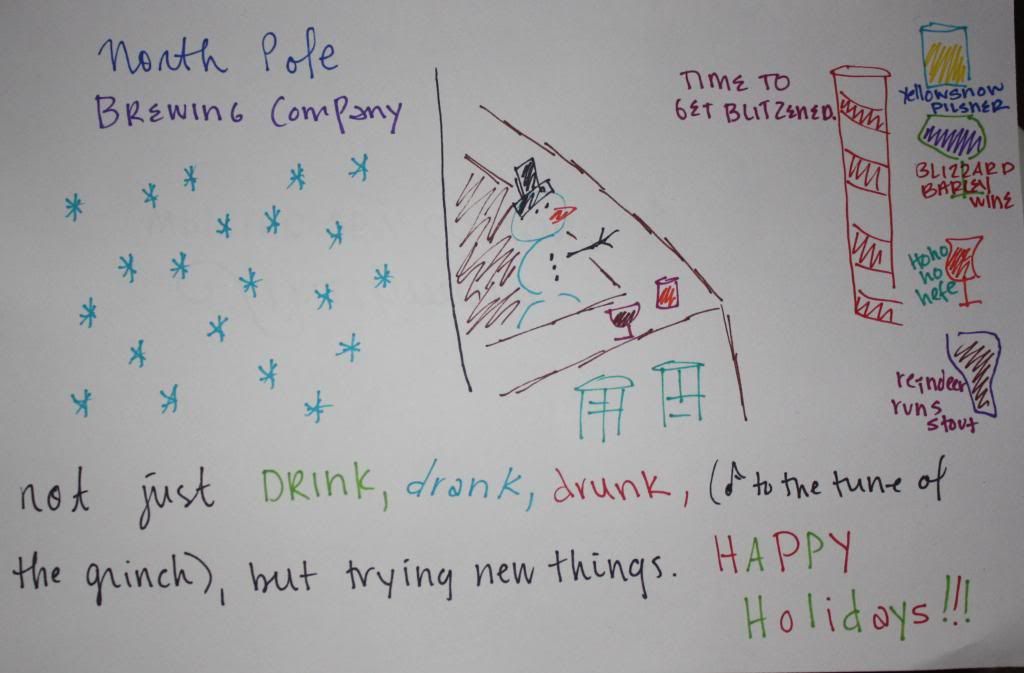 North Pole
BREWING Company
TIME TO
GET BLITZENED.
Yellowsnow
PILSNER
BLIZZARD
BARLEY
WINE
Hoho
ho
hefe
reindeer
runs
stout
not just DRINK, drank, drunk, (♪ to the tune of
the grinch), but trying new things. HAPPY
Holidays!!!